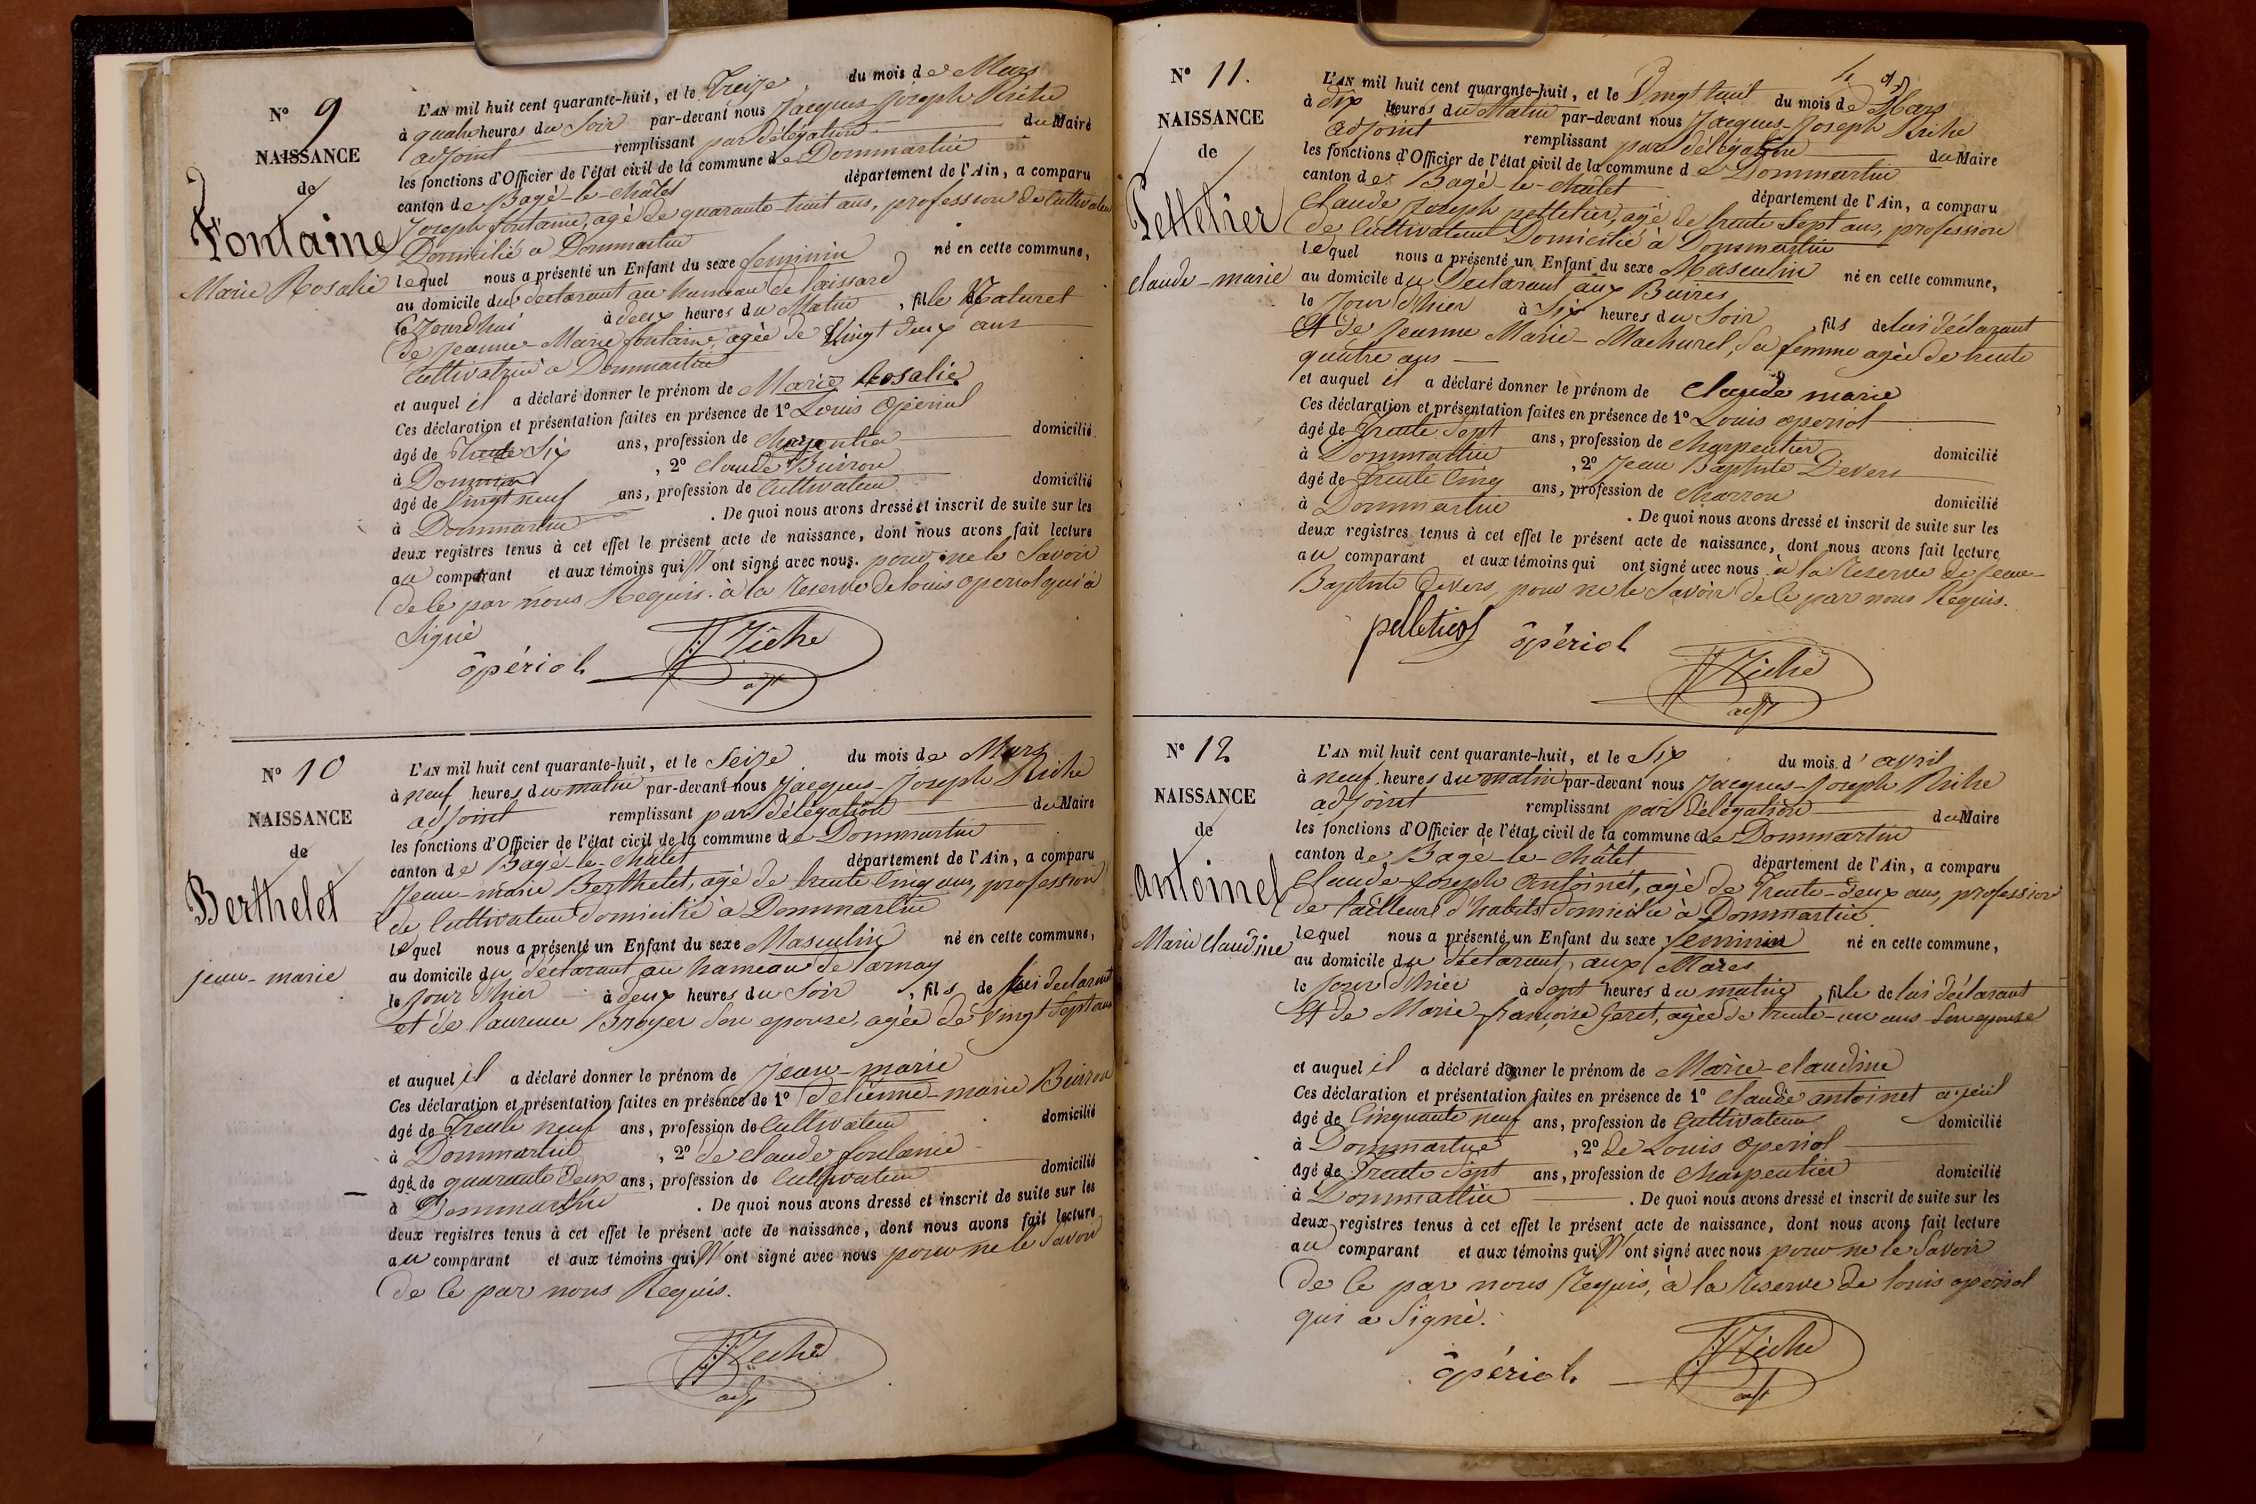 N° 9
NAISSANCE
de
Fontaine
Marie Rosalie
L'AN mil huit cent quarante-huit, et le Treize du mois de Mars
à quatre heures du Soir par-devant nous Jacques-Joseph Riche
adjoint remplissant par délégation du Maire
les fonctions d'Officier de l'état civil de la commune de Dommartin
canton de Bagé-le-Châtel département de l'Ain, a comparu
Joseph fontaine, agé de quarante-huit ans, profession de Cultivateur
Domicilié a Dommartin
lequel nous a présenté un Enfant du sexe feminin né en cette commune,
au domicile du déclarant au hameau de laissard
le Jourdhui à deux heures du Matin, fille Naturel
de Jeanne-Marie fontaine, agée de Vingt deux ans
Cultivatrice a Dommartin
et auquel il a déclaré donner le prénom de Marie Rosalie
Ces déclaration et présentation faites en présence de 1° Louis Opériol
âgé de Trente Six ans, profession de Charpentier domicilié
à Dommar, 2° Claude Buiron
âgé de Vingt neuf ans, profession de Cultivateur domicilié
à Dommartin. De quoi nous avons dressé et inscrit de suite sur les
deux registres tenus à cet effet le présent acte de naissance, dont nous avons fait lecture
au comparant et aux témoins qui N' ont signé avec nous. pour ne le Savoir
de ce par nous Requis. à la reserve de Louis Operiol qui a
Signé
ôpériol JJRiche
adjt
N° 10
NAISSANCE
de
Berthelet
jean-marie
L'AN mil huit cent quarante-huit, et le Seize du mois de Mars
à neuf heures du matin par-devant nous Jacques-Joseph Riche
adjoint remplissant par délégation du Maire
les fonctions d'Officier de l'état civil de la commune de Dommartin
canton de Bagé-le-Châtel département de l'Ain, a comparu
Jean-marie Berthelet, agé de trente Cinq ans, profession
de Cultivateur domicilié à Dommartin
lequel nous a présenté un Enfant du sexe Masculin né en cette commune,
au domicile du déclarant au hameau de arnay
le Jour d'hier à deux heures du Soir, fils de lui déclarant
et de laurence Broyer Son epouse, agée de Vingt Sept ans
et auquel il a déclaré donner le prénom de Jean-marie
Ces déclaration et présentation faites en présence de 1° d'etienne-marie Buiron
âgé de Trente neuf ans, profession de Cultivateur domicilié
à Dommartin, 2° de Claude fontaine
âgé de quarante Deux ans, profession de Cultivateur domicilié
à Dommartin. De quoi nous avons dressé et inscrit de suite sur les
deux registres tenus à cet effet le présent acte de naissance, dont nous avons fait lecture
au comparant et aux témoins qui N' ont signé avec nous pour ne le Savoir
de ce par nous Requis.
JJRiche
adjt
N° 11.
NAISSANCE
de
Pelletier
claude-marie
L'AN mil huit cent quarante-huit, et le Vingt huit du mois de Mars
à dix heures du Matin par-devant nous Jacques-Joseph Riche
adjoint remplissant par délégation du Maire
les fonctions d'Officier de l'état civil de la commune de Dommartin
canton de Bagé-le-Châtel département de l'Ain, a comparu
Claude Joseph pelletier, agé de trente Sept ans, profession
de Cultivateur Domicilié à Dommartin
lequel nous a présenté un Enfant du sexe Masculin né en cette commune,
au domicile du Déclarant aux Buires
le Jour d'hier à Six heures du Soir, fils de lui déclarant
Et de Jeanne Marie-Machurel, Sa femme agée de trente
quatre ans
et auquel il a déclaré donner le prénom de Claude marie
Ces déclaration et présentation faites en présence de 1° Louis operiol
âgé de Trente Sept ans, profession de Charpentier domicilié
à Dommartin, 2° Jean Baptiste Devers
âgé de Trente Cinq ans, profession de Charron domicilié
à Dommartin. De quoi nous avons dressé et inscrit de suite sur les
deux registres tenus à cet effet le présent acte de naissance, dont nous avons fait lecture
au comparant et aux témoins qui ont signé avec nous à la Reserve de Jean-
Baptiste Devers, pour ne le Savoir de ce par nous Requis.
pelletier ôpériol
JJRiche
adjt
N° 12
NAISSANCE
de
Antoinet
Marie claudine
L'AN mil huit cent quarante-huit, et le Six du mois d'avril
à neuf heures du matin par-devant nous Jacques-Joseph Riche
adjoint remplissant par délégation du Maire
les fonctions d'Officier de l'état civil de la commune de Dommartin
canton de Bagé-le-Châtel département de l'Ain, a comparu
Claude-Joseph Antoinet, agé de Trente-deux ans, profession
de tailleur d'habits domicilié à Dommartin
lequel nous a présenté un Enfant du sexe feminin né en cette commune,
au domicile du déclarant, aux Mares
le Jour d'hier à Sept heures du matin, fille de lui déclarant
Et de Marie françoise Geret, agée de trente-un ans Son epouse
et auquel il a déclaré donner le prénom de Marie-claudine
Ces déclaration et présentation faites en présence de 1° Claude antoinet ayeul
âgé de Cinquante neuf ans, profession de Cultivateur domicilié
à Dommartin, 2° de Louis Operiol
âgé de Trente Sept ans, profession de Charpentier domicilié
à Dommartin. De quoi nous avons dressé et inscrit de suite sur les
deux registres tenus à cet effet le présent acte de naissance, dont nous avons fait lecture
au comparant et aux témoins qui N' ont signé avec nous pour ne le Savoir
de ce par nous Requis, à la Reserve de Louis operiol
qui a Signé.
ôpériol JJRiche
adjt